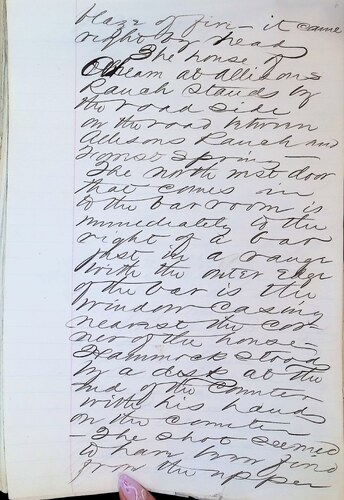 blaze of fire - it came
right by head
The house of
Oldham at Allisons
Ranch stands by
the road side
on the road between
Allisons Ranch and
Forest Spring -
The north west door
that comes in
to the bar room is
immediately to the
right of a bar
just in a range
with the outer edge
of the bar is the
window casing
nearest the cor-
ner of the house -
Hammock stood
by a desk at the
end of the counter
with his hands
on the counter
- The shot seemed
to have been fired
from the upper